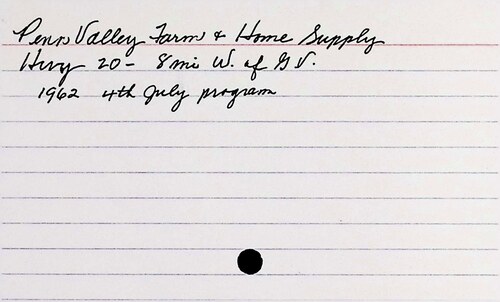 Penn Valley Farm & Home Supply
Hwy 20 - 8 mi W. of G.V.
1962 4th July program